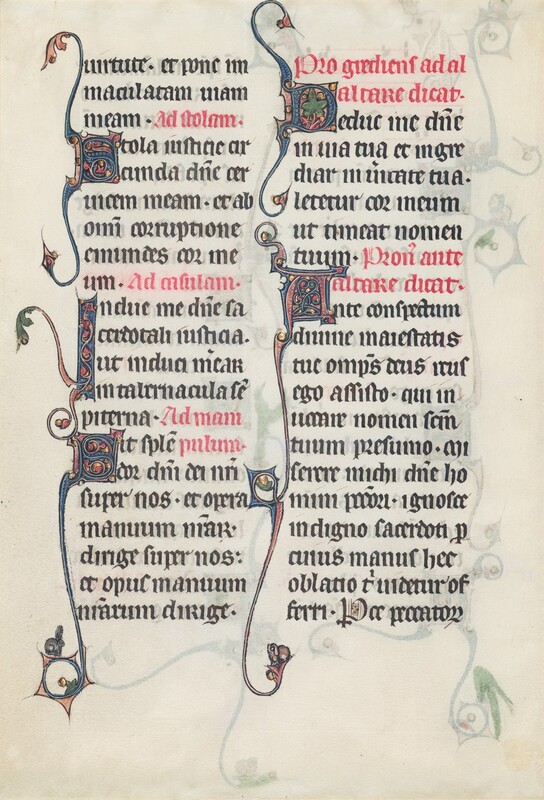 uirtute · et pone im
maculatam uiam
meam · Ad stolam ·
Stola iusticie cir
cumda dñe cer
uicem meam · et ab
om̃i corruptione
emundes cor me
um · Ad casulam ·
Indue me dñe sa
cerdotali iusticia ·
ut induci m̃eaꝛ
in tabernacula sẽ
piterna · Ad mani
Sit splẽ pulum ·
dor dñi dei nr̃i
super nos · et opera
manuum nr̃aꝝ ·
dirige super nos :
et opus manuum
nr̃arum dirige ·
Pro grediens ad al
altare dicat ·
Deduc me dñe
in uia tua et ingre
diar in ũitate tua ·
letetur cor meum
ut timeat nomen
tuum · Pron̄ ante
altare dicat ·
Ante conspectum
diuine maiestatis
tue omp̃s deus reus
ego assisto · qui in
uocare nomen scm̃
tuum presumo · mi
serere michi dñe ho
mini pecc̃ori · ignosce
indigno sacerdoti p̱
cuius manus hec
oblatio t̃ uidetur of
ferri · Pce peccatoꝝ